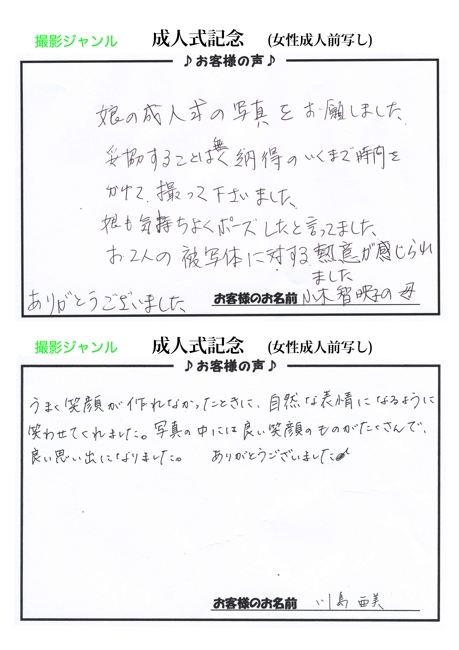 撮影ジャンル 成人式記念 (女性成人前写し)
♪お客様の声♪
娘の成人式の写真をお願しました。
妥協することは無く 納得のいくまで時間を
かけて、撮って下さいました。
娘も気持ちよくポーズしたと言ってました。
お2人の被写体に対する熱意が感じられ
ました
ありがとうございました
お客様のお名前 小木 智映子の母
撮影ジャンル 成人式記念 (女性成人前写し)
♪お客様の声♪
うまく笑顔が作れなかったときに、自然な表情になるように
笑わせてくれました。写真の中には良い笑顔のものがたくさんで、
良い思い出になりました。 ありがとうございました
お客様のお名前 川島 亜美